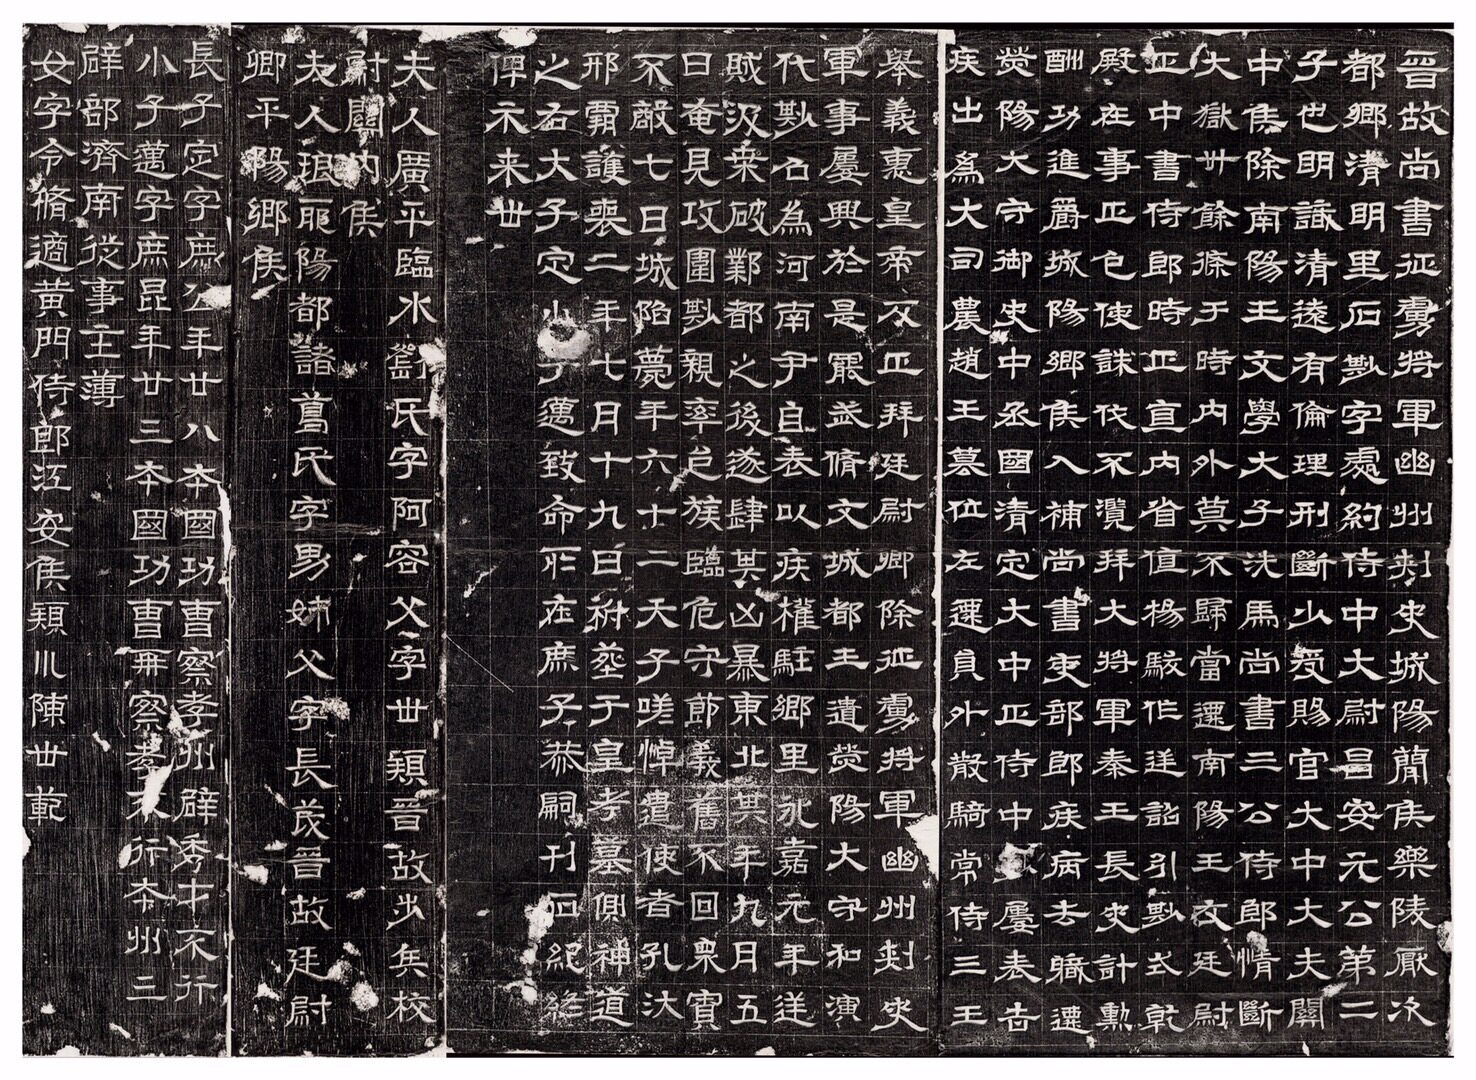 晉故尚書征虜將軍幽州刾史城陽簡侯樂陵厭次
都鄉清明里石尠字處約侍中大尉昌安元公第二
子也明識清遠有倫理刑斷少受賜官大中大夫關
中侯除南陽王文學大子洗馬尚書三公侍郎情斷
大獄卅餘條于時內外莫不歸當遷南陽王友廷尉
正中書侍郎時正直內省值楊駿作逆詔引尠式乾
殿在事正色使誅伐不濫拜大將軍秦王長史計勲
酬功進爵城陽鄉侯入補尚書吏部郎疾病去職遷
滎陽大守御史中丞國清定大中正侍中屢表告
疾出為大司農趙王篡位左遷員外散騎常侍三王
舉義惠皇帝反正拜廷尉卿除征虜將軍幽州刾史
軍事屢興於是罷武脩文城都王遣滎陽大守和演
代尠召為河南尹自表以疾權駐鄉里永嘉元年逆
賊汲桑破鄴都之後遂肆其凶暴東北其年九月五
日奄見攻圍尠親率邑族臨危守節義舊不回衆寡
不敵七日城陷薨年六十二天子嗟悼遣使者孔汏
邢霸護喪二年七月十九日祔葬于皇考墓側神道
之右大子定小子邁致命所在庶子恭嗣刊石紀終
俾示来世
夫人廣平臨水劉氏字阿容父字世穎晉故步兵校
尉關內侯
夫人琅耶陽都諸葛氏字男姊父字長茂晉故廷尉
卿平陽鄉侯
長子定字庶公年廿八本國功曹察孝州辟秀才不行
小子邁字庶昆年廿三本國功曹再察孝不行本州三
辟部濟南從事主薄
女字令脩適黃門侍郎江安侯穎川陳世範